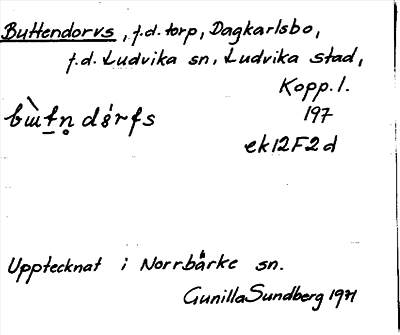 Buttendorvs, f.d. torp, Dagkarlsbo,
f.d. Ludvika sn, Ludvika stad,
Kopp. l.
197
ek12F2d
Upptecknat i Norrbärke sn.
Gunilla Sundberg 1971